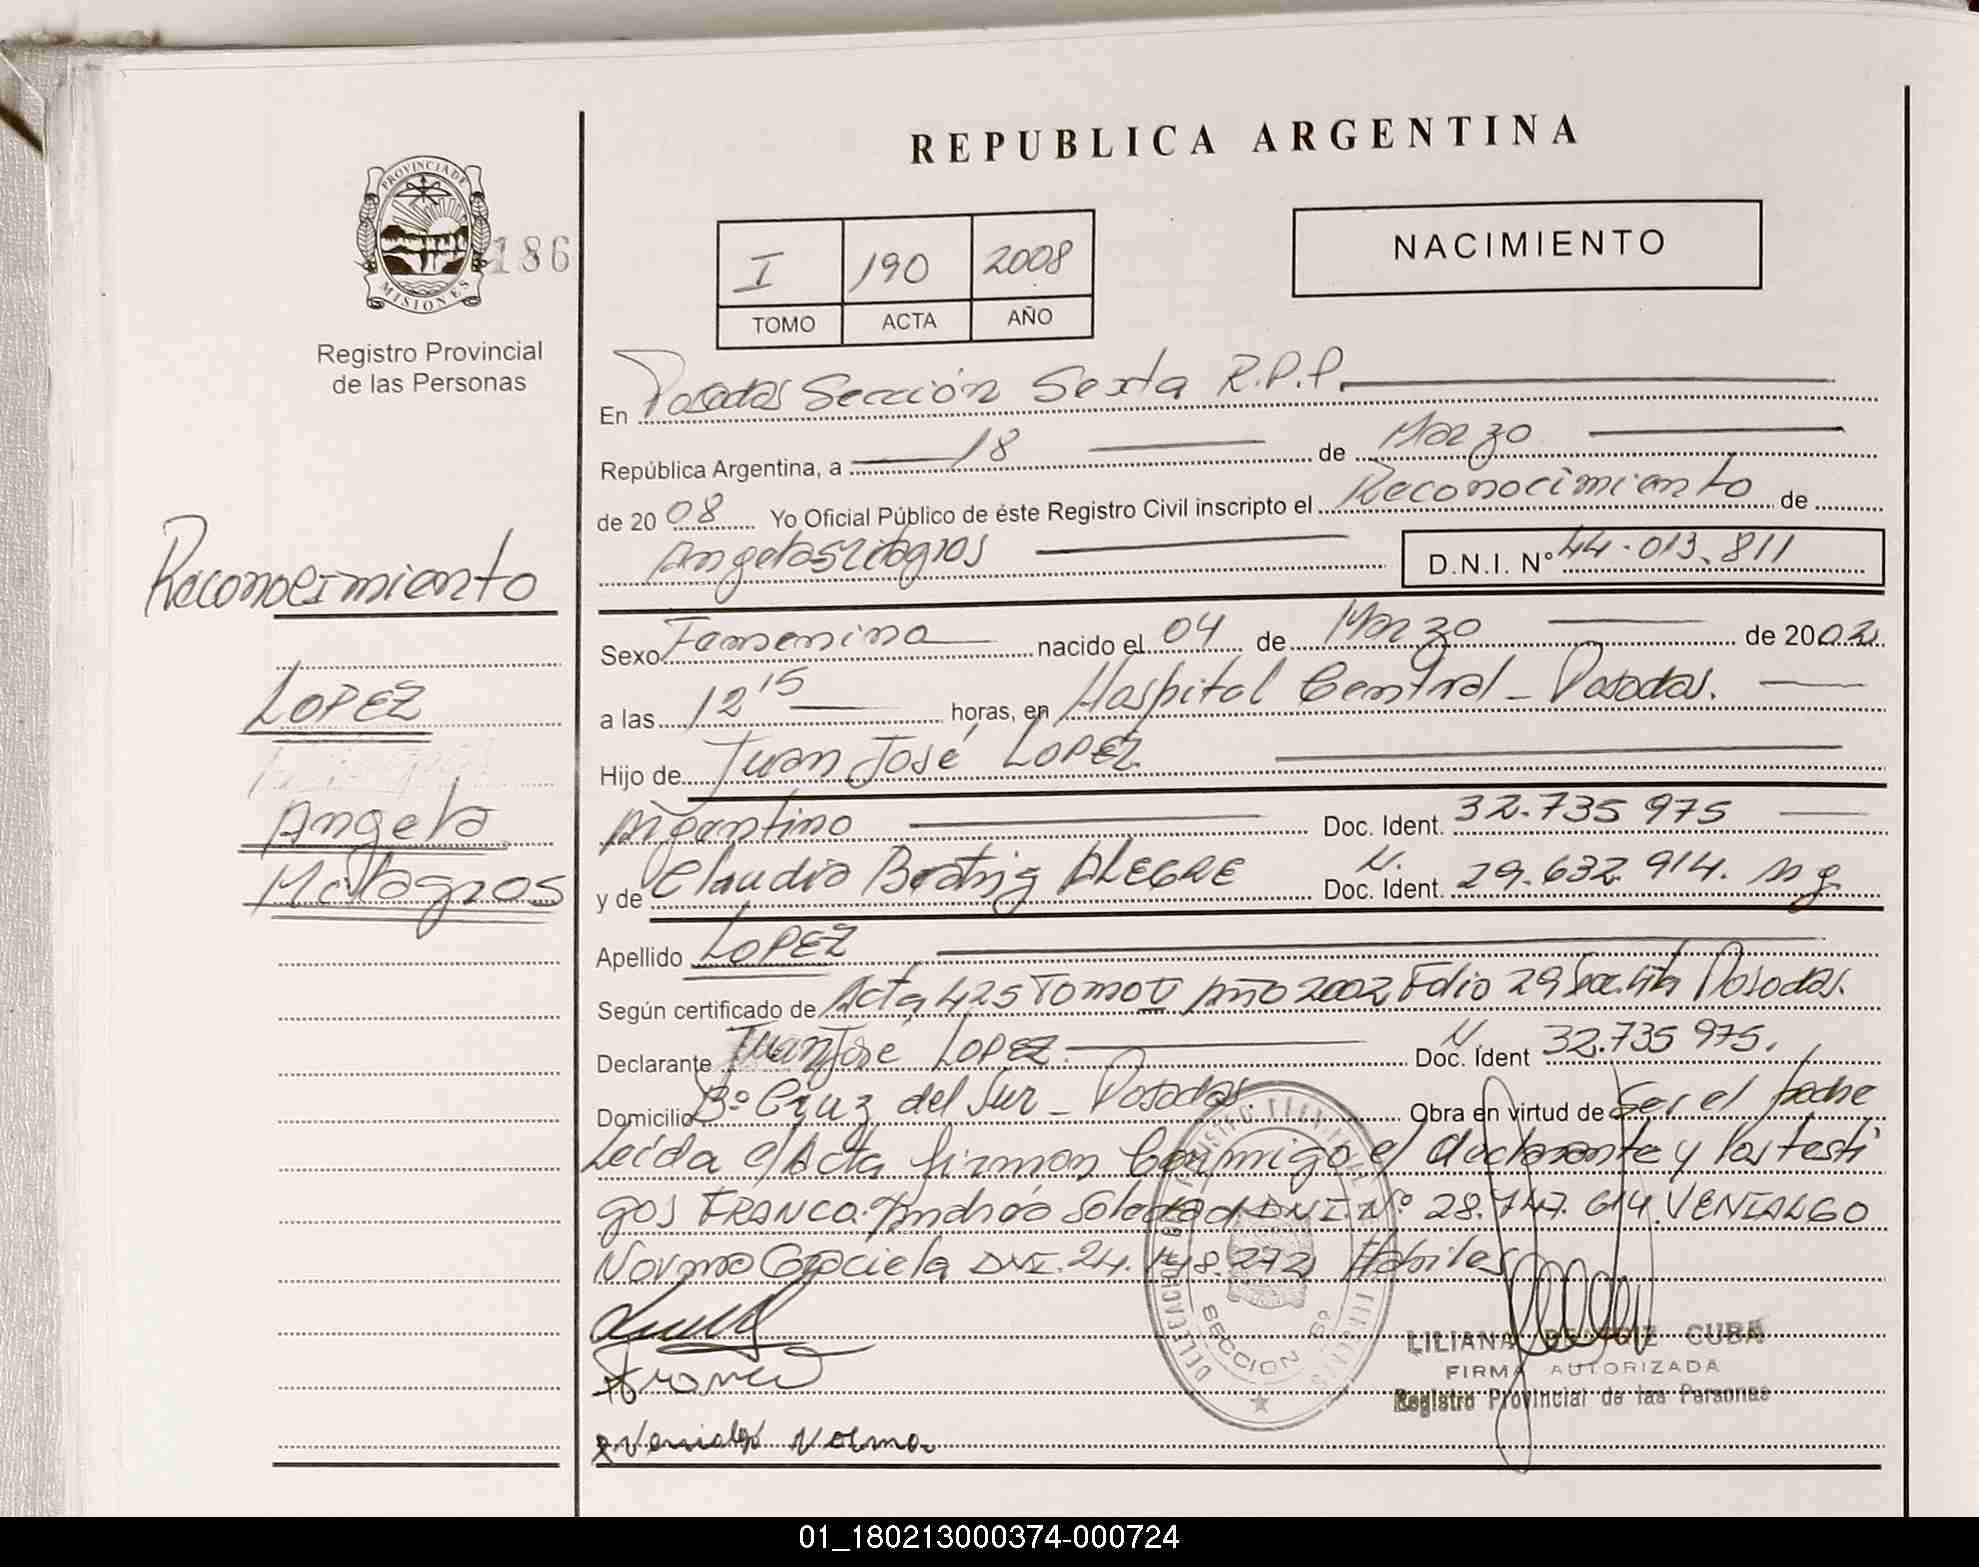 REPUBLICA ARGENTINA
PROVINCIA DE
MISIONES
186
Registro Provincial
de las Personas
I 190 2008
TOMO ACTA AÑO
NACIMIENTO
En Posadas Sección Sexta R.P.P.
República Argentina, a 18 de Marzo
de 20 08 Yo Oficial Público de éste Registro Civil inscripto el Reconocimiento de
Angela Milagros D.N.I. Nº 44.013.811
Reconocimiento
LOPEZ
Angela
Milagros
Sexo Femenino nacido el 04 de Marzo de 2002
a las 12 15 horas, en Hospital Central - Posadas.
Hijo de Juan José LOPEZ
Argentino Doc. Ident. 32.735 975
y de Claudia Beatriz ALEGRE Doc. Ident. N. 29.632.914.
Apellido LOPEZ
Según certificado de Acta 425 Tomo Año 2002 Folio 29 Posadas.
Declarante Juan José LOPEZ. Doc. Ident N. 32.735 975.
Domicilio Bº Cruz del Sur - Posadas. Obra en virtud de Ser el padre
Leída el Acta firman Conmigo el declarante y los testi
gos FRANCO Andrea Soledad DNI. Nº 28.747.614. VENIALGO
Norma Graciela DNI. 24.148.272 Habiles
Franco
Venialgo Norma
SECCION 6º
LILIANA BEATRIZ CUBA
FIRMA AUTORIZADA
Registro Provincial de las Personas
01_180213000374-000724